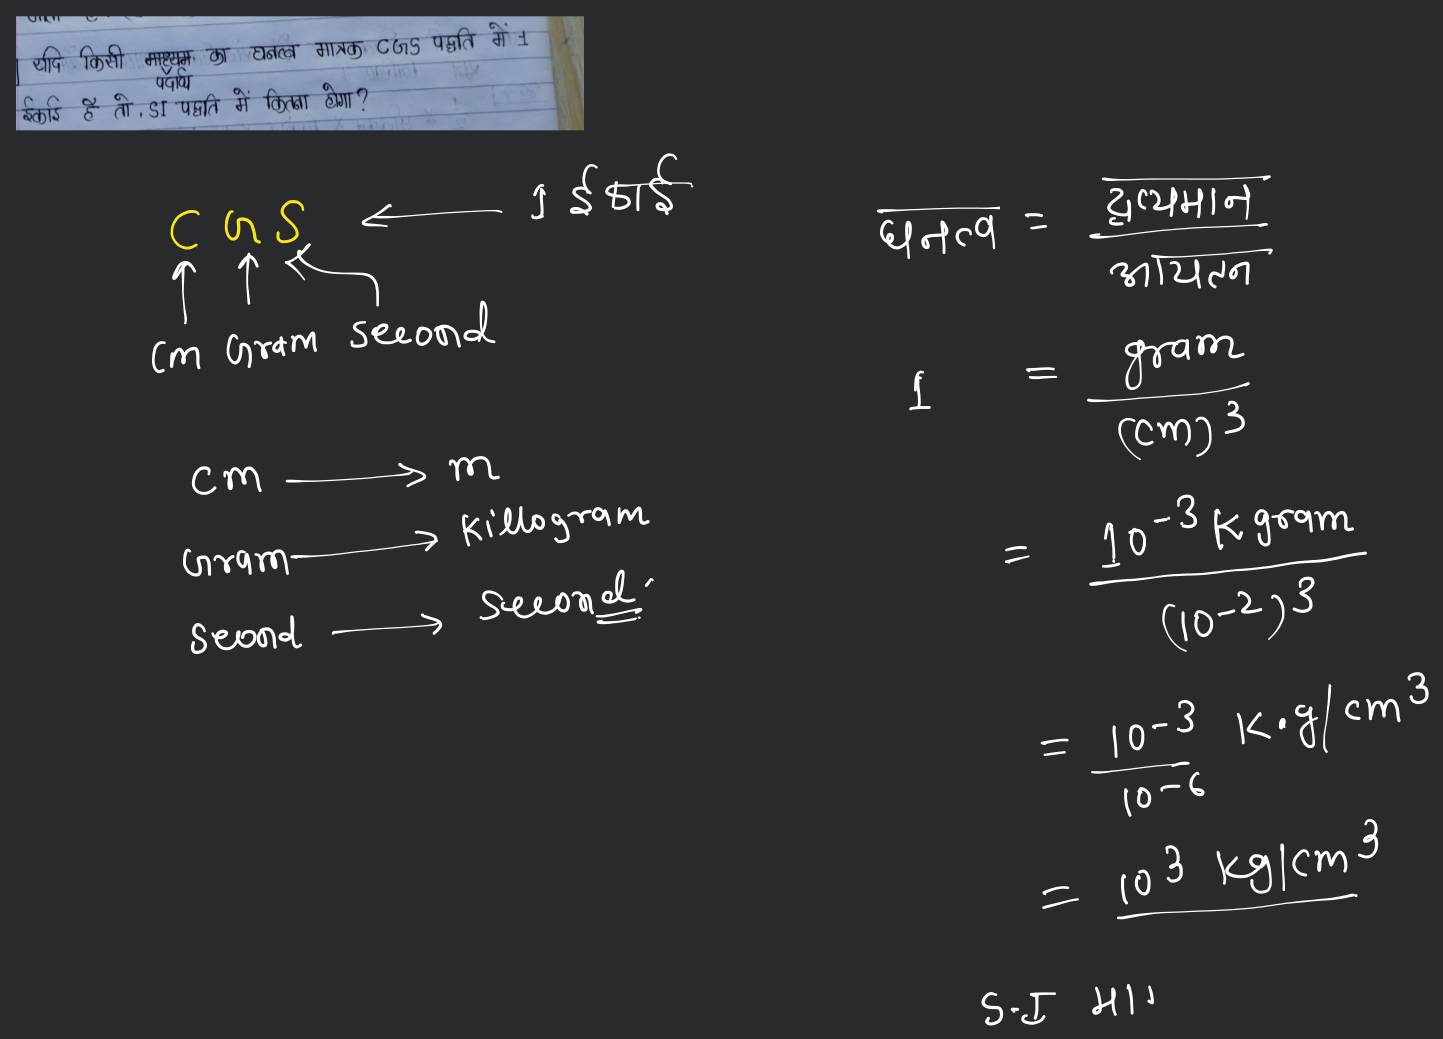 यदि किसी माध्यम का घनत्व मात्रक CGS पद्धति में 1
पदार्थ
ईकाई है तो, SI पद्धति में कितना होगा?
C G S ← 1 ईकाई
Cm Gram Second
cm → m
Gram → Killogram
Seond → Second
घनत्व = द्रव्यमान
आयतन
1 = gram
(cm)3
= 10-3 K gram
(10-2)3
= 10-3 K.g/cm3
10-6
= 103 kg/cm3
S.I